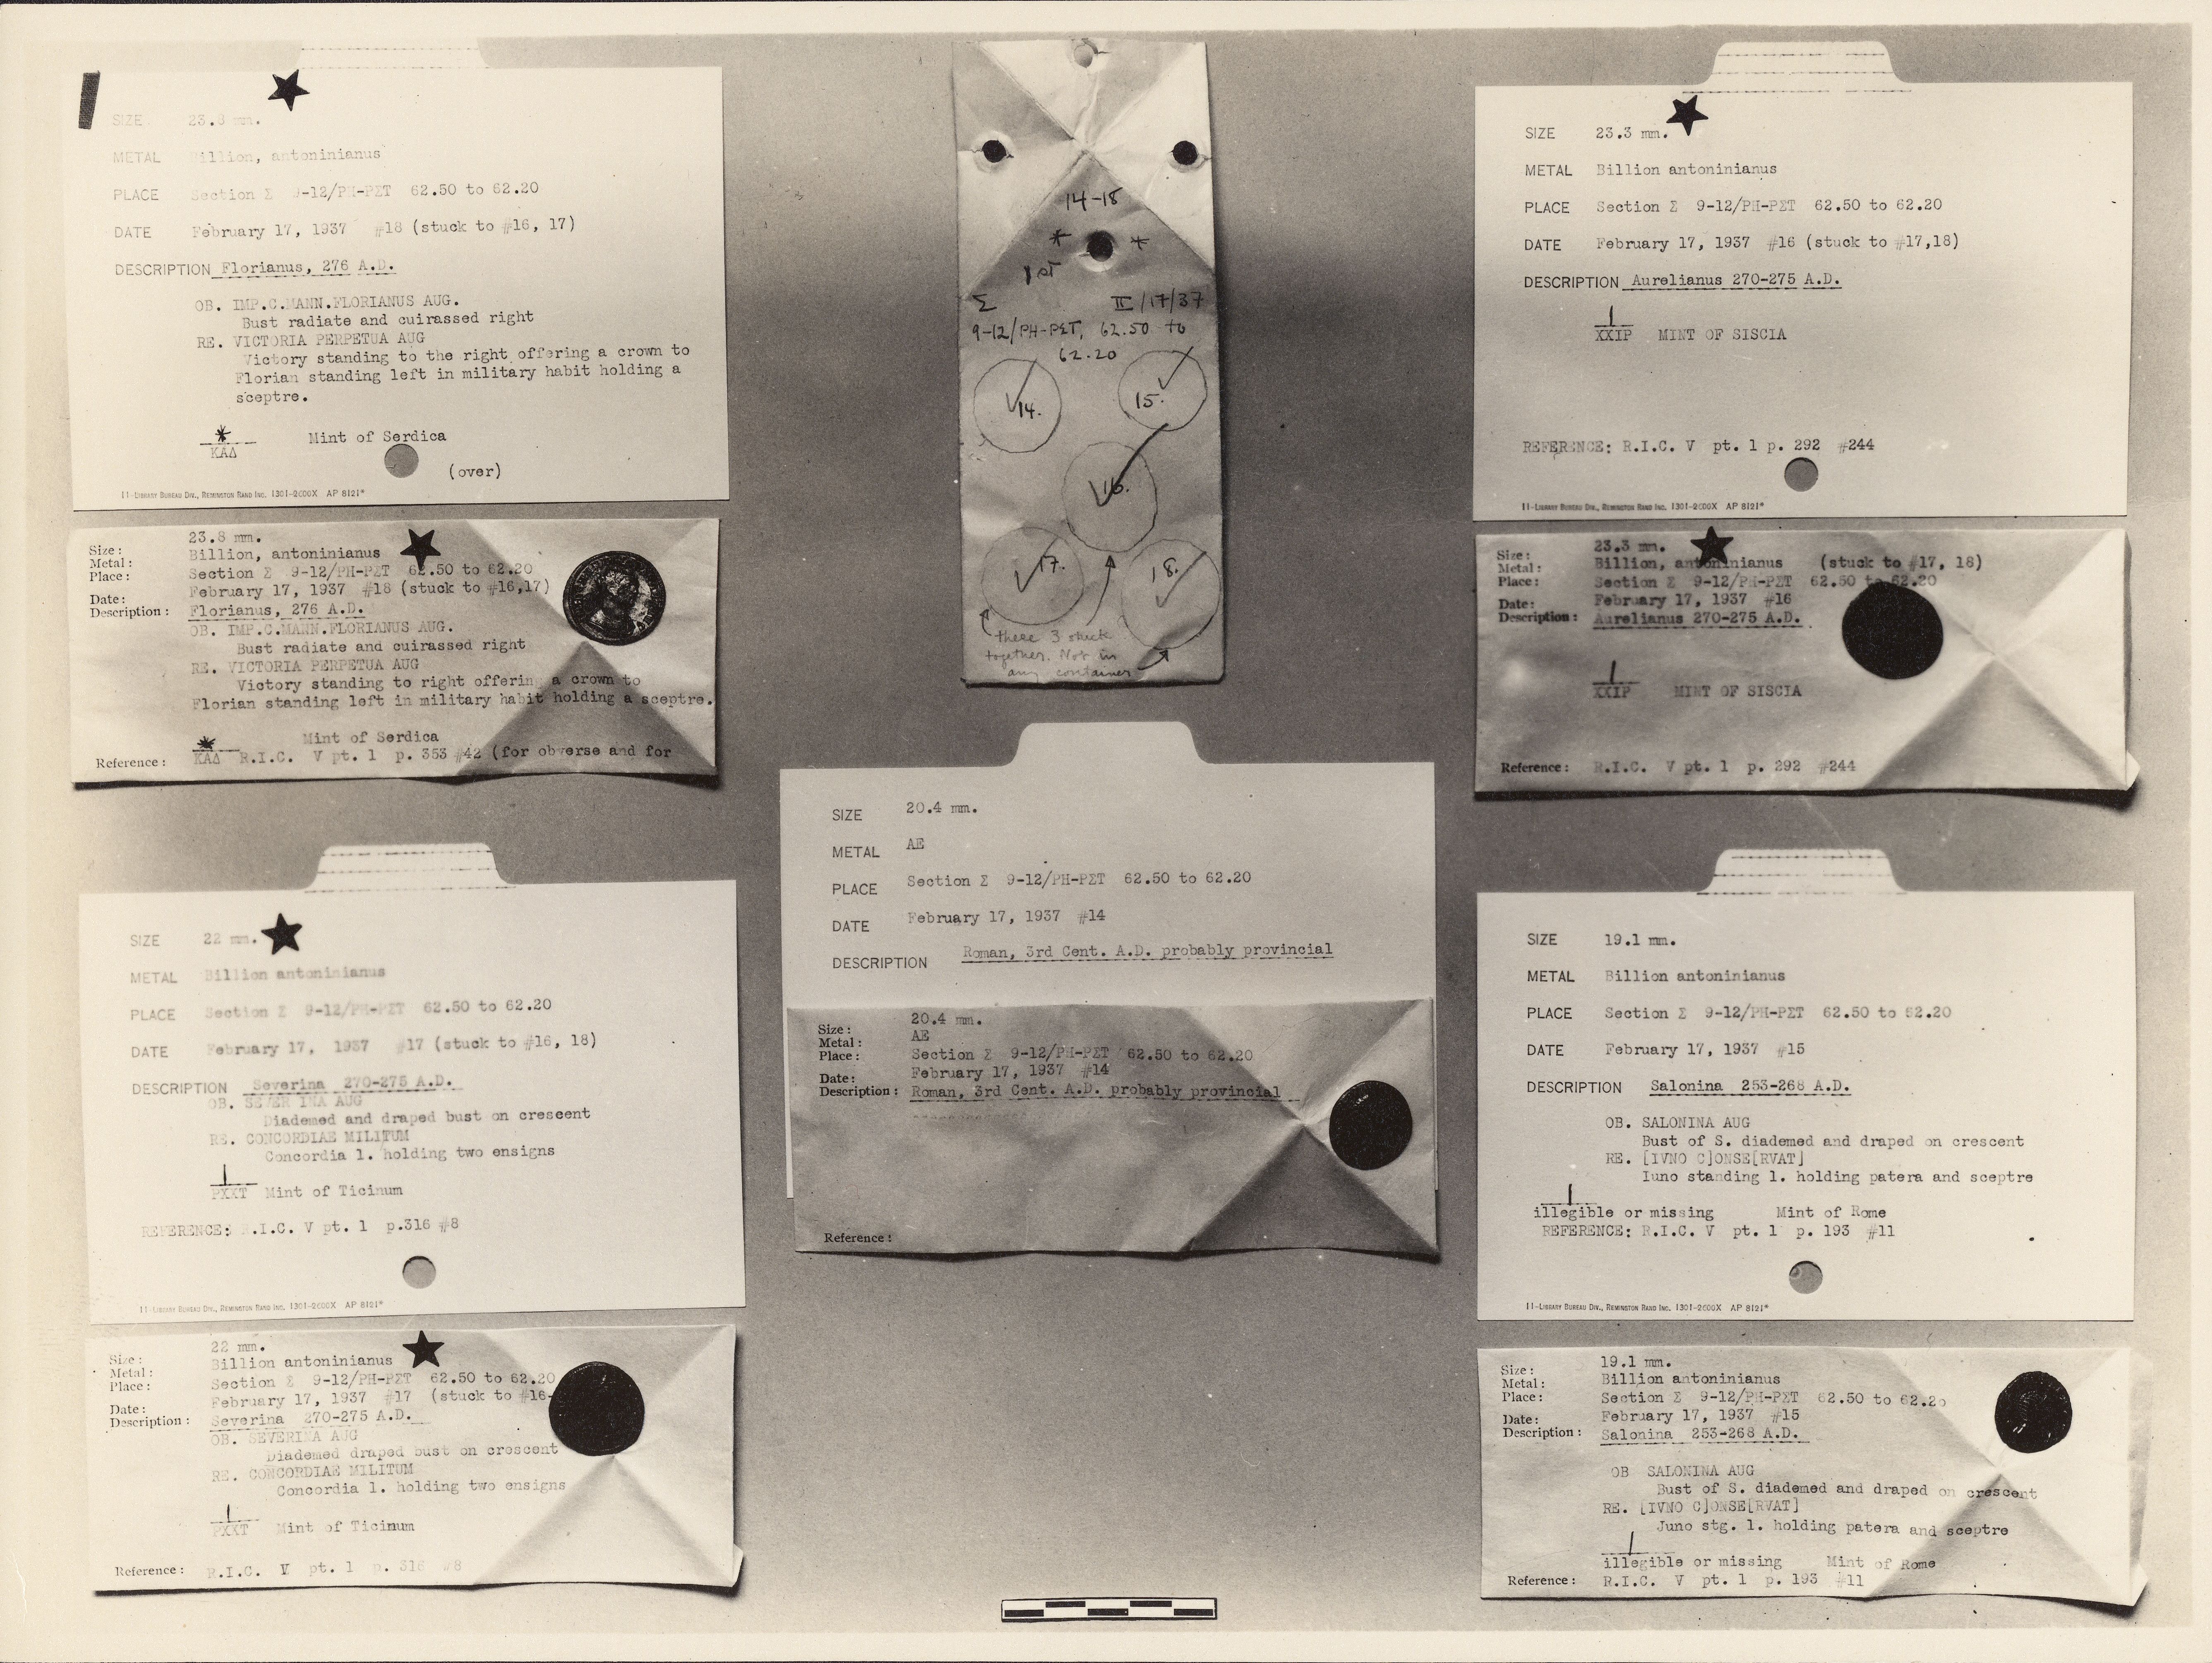 SIZE 23.8 mm.
METAL Billion, antoninianus
PLACE Section Σ 9-12/ΡΗ-ΡΣΤ 62.50 to 62.20
DATE February 17, 1937 #18 (stuck to #16, 17)
DESCRIPTION Florianus, 276 A.D.
OB. IMP.C.MANN.FLORIANUS AUG.
Bust radiate and cuirassed right
RE. VICTORIA PERPETUA AUG
Victory standing to the right offering a crown to
Florian standing left in military habit holding a
sceptre.
*
ΚΑΔ Mint of Serdica
(over)
11-Library Bureau Div., Remington Rand Inc. 1301-2600X AP 8121*
Size: 23.8 mm.
Metal: Billion, antoninianus
Place: Section Σ 9-12/ΡΗ-ΡΣΤ 62.50 to 62.20
Date: February 17, 1937 #18 (stuck to #16,17)
Description: Florianus, 276 A.D.
OB. IMP.C.MANN.FLORIANUS AUG.
Bust radiate and cuirassed right
RE. VICTORIA PERPETUA AUG
Victory standing to right offering a crown to
Florian standing left in military habit holding a sceptre.
Mint of Serdica
*
Reference: ΚΑΔ R.I.C. V pt. 1 p. 353 #42 (for obverse and for
SIZE 22 mm.
METAL Billion antoninianus
PLACE Section Σ 9-12/ΡΗ-ΡΣΤ 62.50 to 62.20
DATE February 17, 1937 #17 (stuck to #16, 18)
DESCRIPTION Severina 270-275 A.D.
OB. SEVERINA AUG
Diademed and draped bust on crescent
RE. CONCORDIAE MILITUM
Concordia l. holding two ensigns
PXXT Mint of Ticinum
REFERENCE: R.I.C. V pt. 1 p.316 #8
11-Library Bureau Div., Remington Rand Inc. 1301-2600X AP 8121*
Size: 22 mm.
Metal: Billion antoninianus
Place: Section Σ 9-12/ΡΗ-ΡΣΤ 62.50 to 62.20
Date: February 17, 1937 #17 (stuck to #16-
Description: Severina 270-275 A.D.
OB. SEVERINA AUG
Diademed draped bust on crescent
RE. CONCORDIAE MILITUM
Concordia l. holding two ensigns
PXXT Mint of Ticinum
Reference: R.I.C. V pt. 1 p. 316 #8
14-18
* *
1st
Σ II/17/37
9-12/ΡΗ-ΡΣΤ, 62.50 to
62.20
14. 15.
16.
17. 18.
these 3 stuck
together. Not in
any container
SIZE 20.4 mm.
METAL AE
PLACE Section Σ 9-12/ΡΗ-ΡΣΤ 62.50 to 62.20
DATE February 17, 1937 #14
DESCRIPTION Roman, 3rd Cent. A.D. probably provincial
Size: 20.4 mm.
Metal: AE
Place: Section Σ 9-12/ΡΗ-ΡΣΤ 62.50 to 62.20
Date: February 17, 1937 #14
Description: Roman, 3rd Cent. A.D. probably provincial
Reference:
SIZE 23.3 mm.
METAL Billion antoninianus
PLACE Section Σ 9-12/ΡΗ-ΡΣΤ 62.50 to 62.20
DATE February 17, 1937 #16 (stuck to #17,18)
DESCRIPTION Aurelianus 270-275 A.D.
XXIP MINT OF SISCIA
REFERENCE: R.I.C. V pt. 1 p. 292 #244
11-Library Bureau Div., Remington Rand Inc. 1301-2600X AP 8121*
Size: 23.3 mm.
Metal: Billion, antoninianus (stuck to #17, 18)
Place: Section Σ 9-12/ΡΗ-ΡΣΤ 62.50 to 62.20
Date: February 17, 1937 #16
Description: Aurelianus 270-275 A.D.
XXIP MINT OF SISCIA
Reference: R.I.C. V pt. 1 p. 292 #244
SIZE 19.1 mm.
METAL Billion antoninianus
PLACE Section Σ 9-12/ΡΗ-ΡΣΤ 62.50 to 62.20
DATE February 17, 1937 #15
DESCRIPTION Salonina 253-268 A.D.
OB. SALONINA AUG
Bust of S. diademed and draped on crescent
RE. [IVNO C]ONSE[RVAT]
Iuno standing l. holding patera and sceptre
illegible or missing Mint of Rome
REFERENCE: R.I.C. V pt. 1 p. 193 #11
11-Library Bureau Div., Remington Rand Inc. 1301-2600X AP 8121*
Size: 19.1 mm.
Metal: Billion antoninianus
Place: Section Σ 9-12/ΡΗ-ΡΣΤ 62.50 to 62.20
Date: February 17, 1937 #15
Description: Salonina 253-268 A.D.
OB SALONINA AUG
Bust of S. diademed and draped on crescent
RE. [IVNO C]ONSE[RVAT]
Juno stg. l. holding patera and sceptre
illegible or missing Mint of Rome
Reference: R.I.C. V pt. 1 p. 193 #11